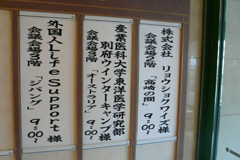 株式会社 リョウショクワイズ様
会議会場2階 「高崎の間」 9:00～
産業医科大学東洋医学研究部
別府ウインターキャンプ様
会議会場3階 「オーストラリア」 9:00～
外国人LifeSupport様
会議会場3階 「ジパング」 9:00～